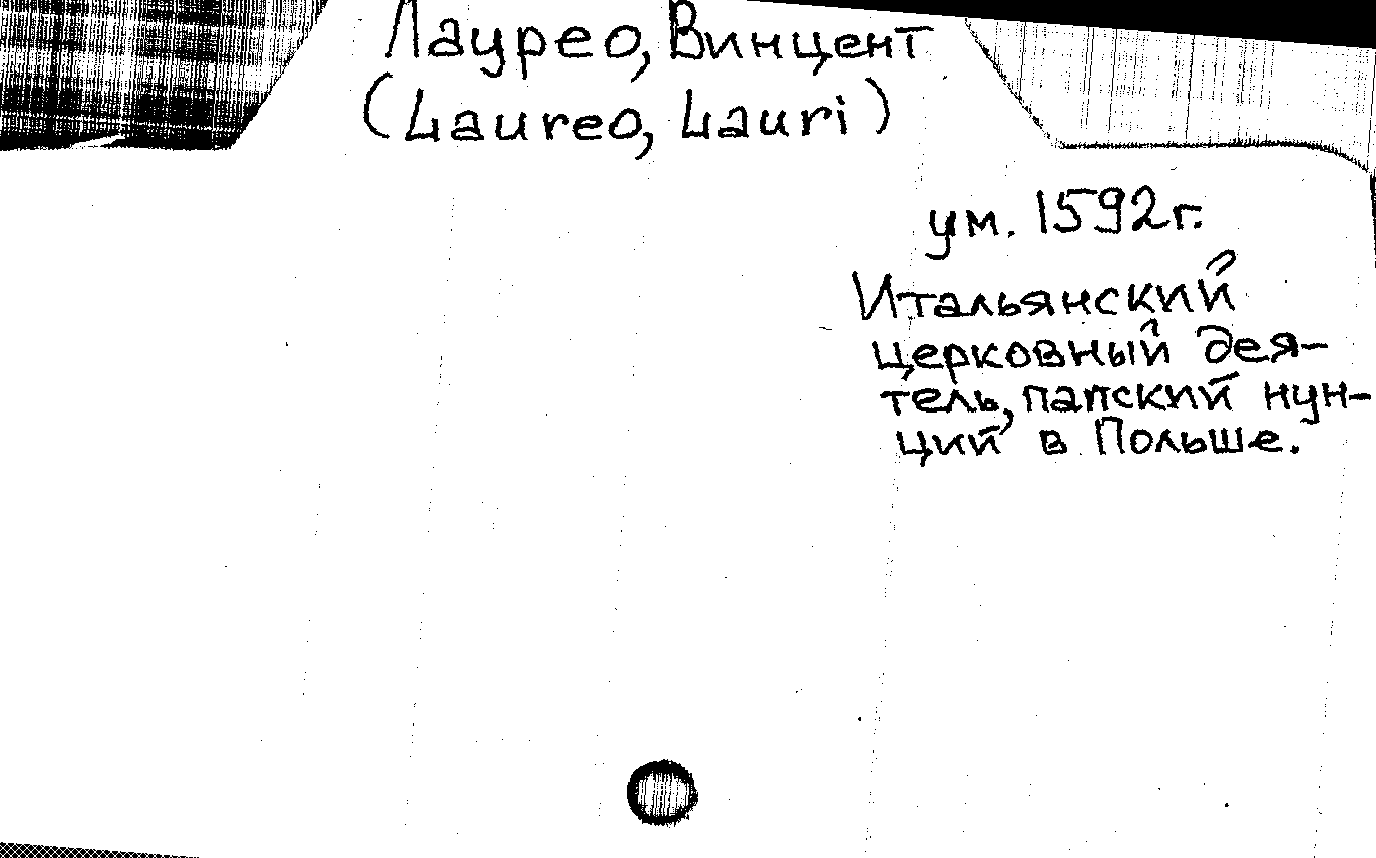 Лаурео, Винцент
(Laureo, Lauri)
ум. 1592г.
Итальянский
церковный дея-
тель, папский нун-
ций в Польше.